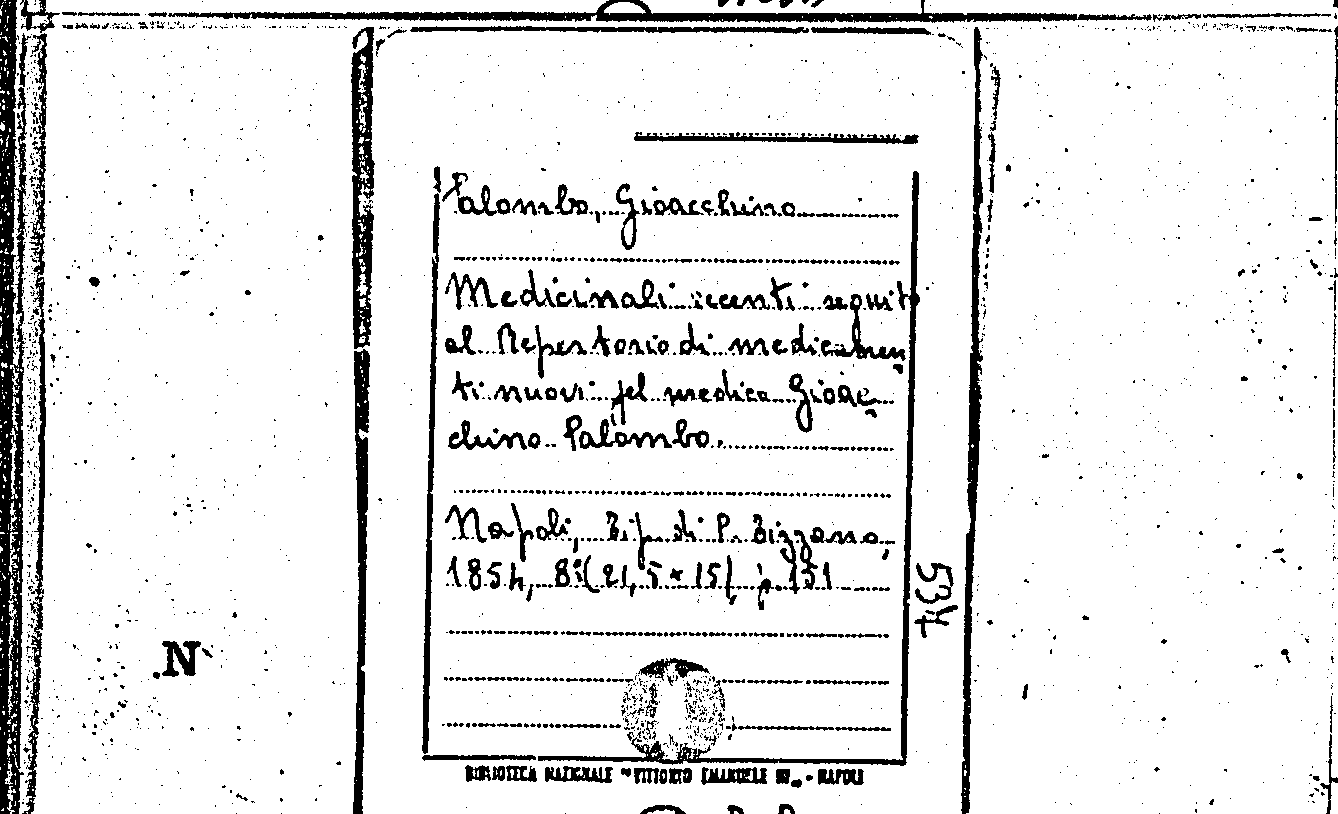 Palombo, Gioacchino
Medicinali recenti seguito
al Repertorio di medicamen
ti nuovi pel medico Gioac
chino Palombo.
Napoli, Tip. di P. Bizzarro,
1854, 8°(21,5 x 15), p. 151
534
.N
BIBLIOTECA NAZIONALE "VITTORIO EMANUELE III" - NAPOLI